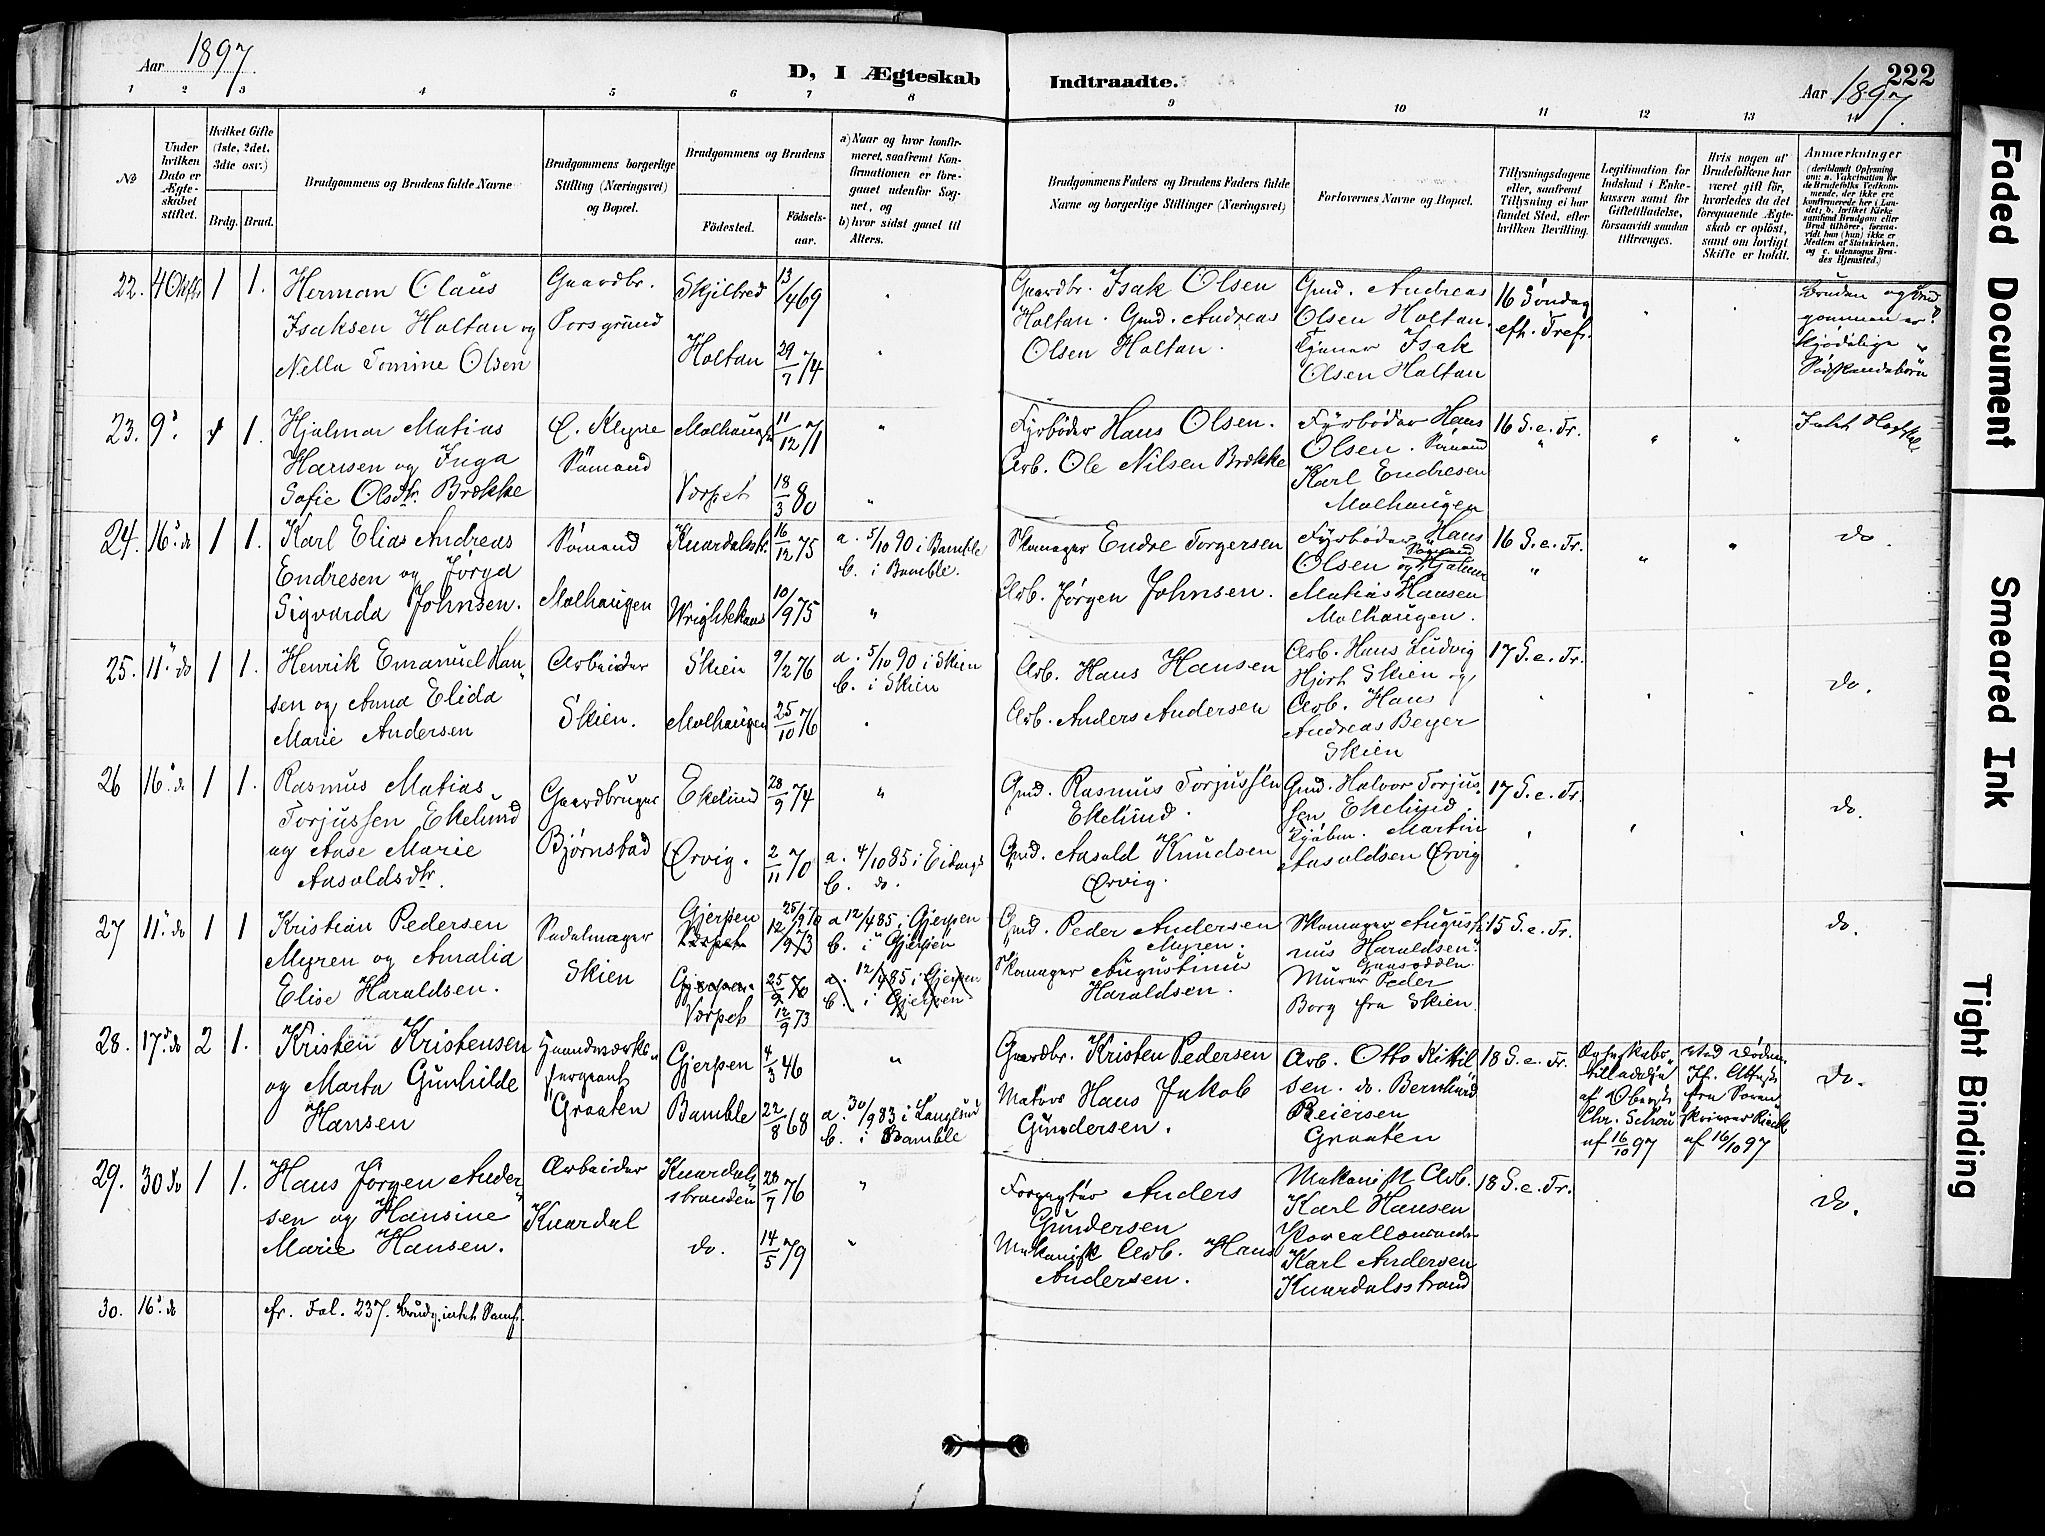 Aar 1897.
D, I Ægteskab
Indtraadte.
Aar 1897.
222
1 2 3 4 5 6 7 8 9 10 11 12 13 14
No
Under hvilken Dato er Ægteskabet stiftet.
Hvilket Gifte (1ste, 2det, 3die osv.)
Brdg. Brud.
Brudgommens og Brudens fulde Navne
Brudgommens borgerlige Stilling (Næringsvei) og Bopæl.
Brudgommens og Brudens
Fødested.
Fødselsaar.
a) Naar og hvor konfirmeret, saafremt Konfirmationen er foregaaet udenfor Sognet, og
b) hvor sidst gaaet til Alters.
Brudgommens Faders og Brudens Faders fulde Navne og borgerlige Stillinger (Næringsvei)
Forlovernes Navne og Bopæl.
Tillysningsdagene eller, saafremt Tillysning ei har fundet Sted, efter hvilken Bevilling.
Legitimation for Indskud i Enkekassen samt for Giftetilladelse, forsaavidt saadan tiltrænges.
Hvis nogen af Brudefolkene har været gift før, hvorledes da det foregaaende Ægteskab er opløst, samt om lovligt Skifte er holdt.
Anmærkninger
22. 4 Oktbr 1 1.
Herman Olaus
Isaksen Holtan og
Nella Tomine Olsen
Gaardbr.
Porsgrund
Skjilbred 13/4 69
Holtan 29/7 74
Gaardbr. Isak Olsen
Holtan. Gmd. Andreas
Olsen Holtan.
Gmd. Andreas
Olsen Holtan.
Tjener Isak
Olsen Holtan
16 Søndag
eft. Tref.
Bruden og Brud
gommen er
kjødelige
Sødskendebørn
23. 9. 1 1.
Hjalmar Matias
Hansen og Inga
Sofie Olsdtr. Brække
Sømand
Molhaugen 11/12 71
Vorpet 18/3 80
Fyrbøder Hans Olsen.
Arb. Ole Nilsen Brække
Fyrbøder Hans
Olsen. Sømand
Karl Endresen
Molhaugen
16 S. e. Tr.
24. 16. do 1 1.
Karl Elias Andreas
Endresen og Jørga
Sigvarda Johnsen.
Sømand
Molhaugen
Knardalsstr. 16/12 75
Wrightehaus 10/9 75
a. 5/10 90 i Bamble
b. i Bamble.
Skomager Endre Torgersen
Arb. Jørgen Johnsen.
Fyrbøder Hans
Olsen Sømand og Hjalmar
Matias Hansen
Molhaugen.
16 S. e. Tr.
do.
25. 11. do 1 1.
Henrik Emanuel Han
sen og Anna Elida
Marie Andersen
Arbeider
Skien.
Skien 9/2 76
Molhaugen 25/10 76
a. 5/10 90 i Skien
b. i Skien
Arb. Hans Hansen
Arb. Anders Andersen
Arb. Hans Ludvig
Hjort Skien og
Arb. Hans
Andreas Beyer
Skien
17 S. e. Tr.
do.
26 16. do 1 1.
Rasmus Matias
Torjussen Ekelund
og Anse Marie
Aasoldsdtr.
Gaardbruger
Bjørnstad
Ekelund 28/9 74
Ørvig. 2/11 70
a. 4/10 85 i Eidanger
b. do.
Gmd. Rasmus Torjussen
Ekelund.
Gmd. Aasold Knudsen
Ørvig.
Gmd. Halvor Torjus
sen Ekelund.
Kjøbm. Martin
Aasoldsen Ørvig
17 S. e. Tr.
do.
27 11. do 1 1
Kristian Pedersen
Myren og Amalia
Elise Haraldsen.
Sadelmager
Skien
Gjerpen 25/9 70
Vorpet 12/9 73
Gjerpen 25/9 70
Vorpet 12/9 73
a 12/4 85 i Gjerpen
b. i Gjerpen
a. 12/4 85 i Gjerpen
b. i Gjerpen
Gmd. Peder Andersen
Myren.
Skomager Augustinus
Haraldsen.
Skomager Augusti
nus Haraldsen
Murer Peder
Borg fra Skien
15 S. e. Tr.
do.
28. 17. do 2 1.
Kristen Kristensen
og Marta Gunhilde
Hansen
Haandværks
sergeant
Graaten
Gjerpen 4/3 46
Bamble 22/8 68
a. 30/9 83 i Langesund
b. i Bamble
Gaardbr. Kristen Pedersen
Matros Hans Jakob
Gundersen.
Arb. Otto Kittil
sen. do. Bernhard
Reiersen
Graaten
18 S. e. Tr.
Ægteskabs
tilladelse
af Oberst
Chr. Schou
af 16/10 97
ved Døden.
If. Attest
fra Soren
skriver
af 16/10 97
do.
29. 30 do 1 1.
Hans Jørgen Ander
sen og Hansine
Marie Hansen.
Arbeider
Knardal
Knardals
stranden 28/7 76
do. 14/5 79
Forpagter Anders
Gundersen
Mekanisk Arb. Hans
Andersen.
Mekanisk Arb.
Karl Hansen
Karl Andersen
Knardalsstrand
18 S. e. Tr.
do.
30. 16. do
fr. Fol. 237.
Faded Document
Smeared Ink
Tight Binding